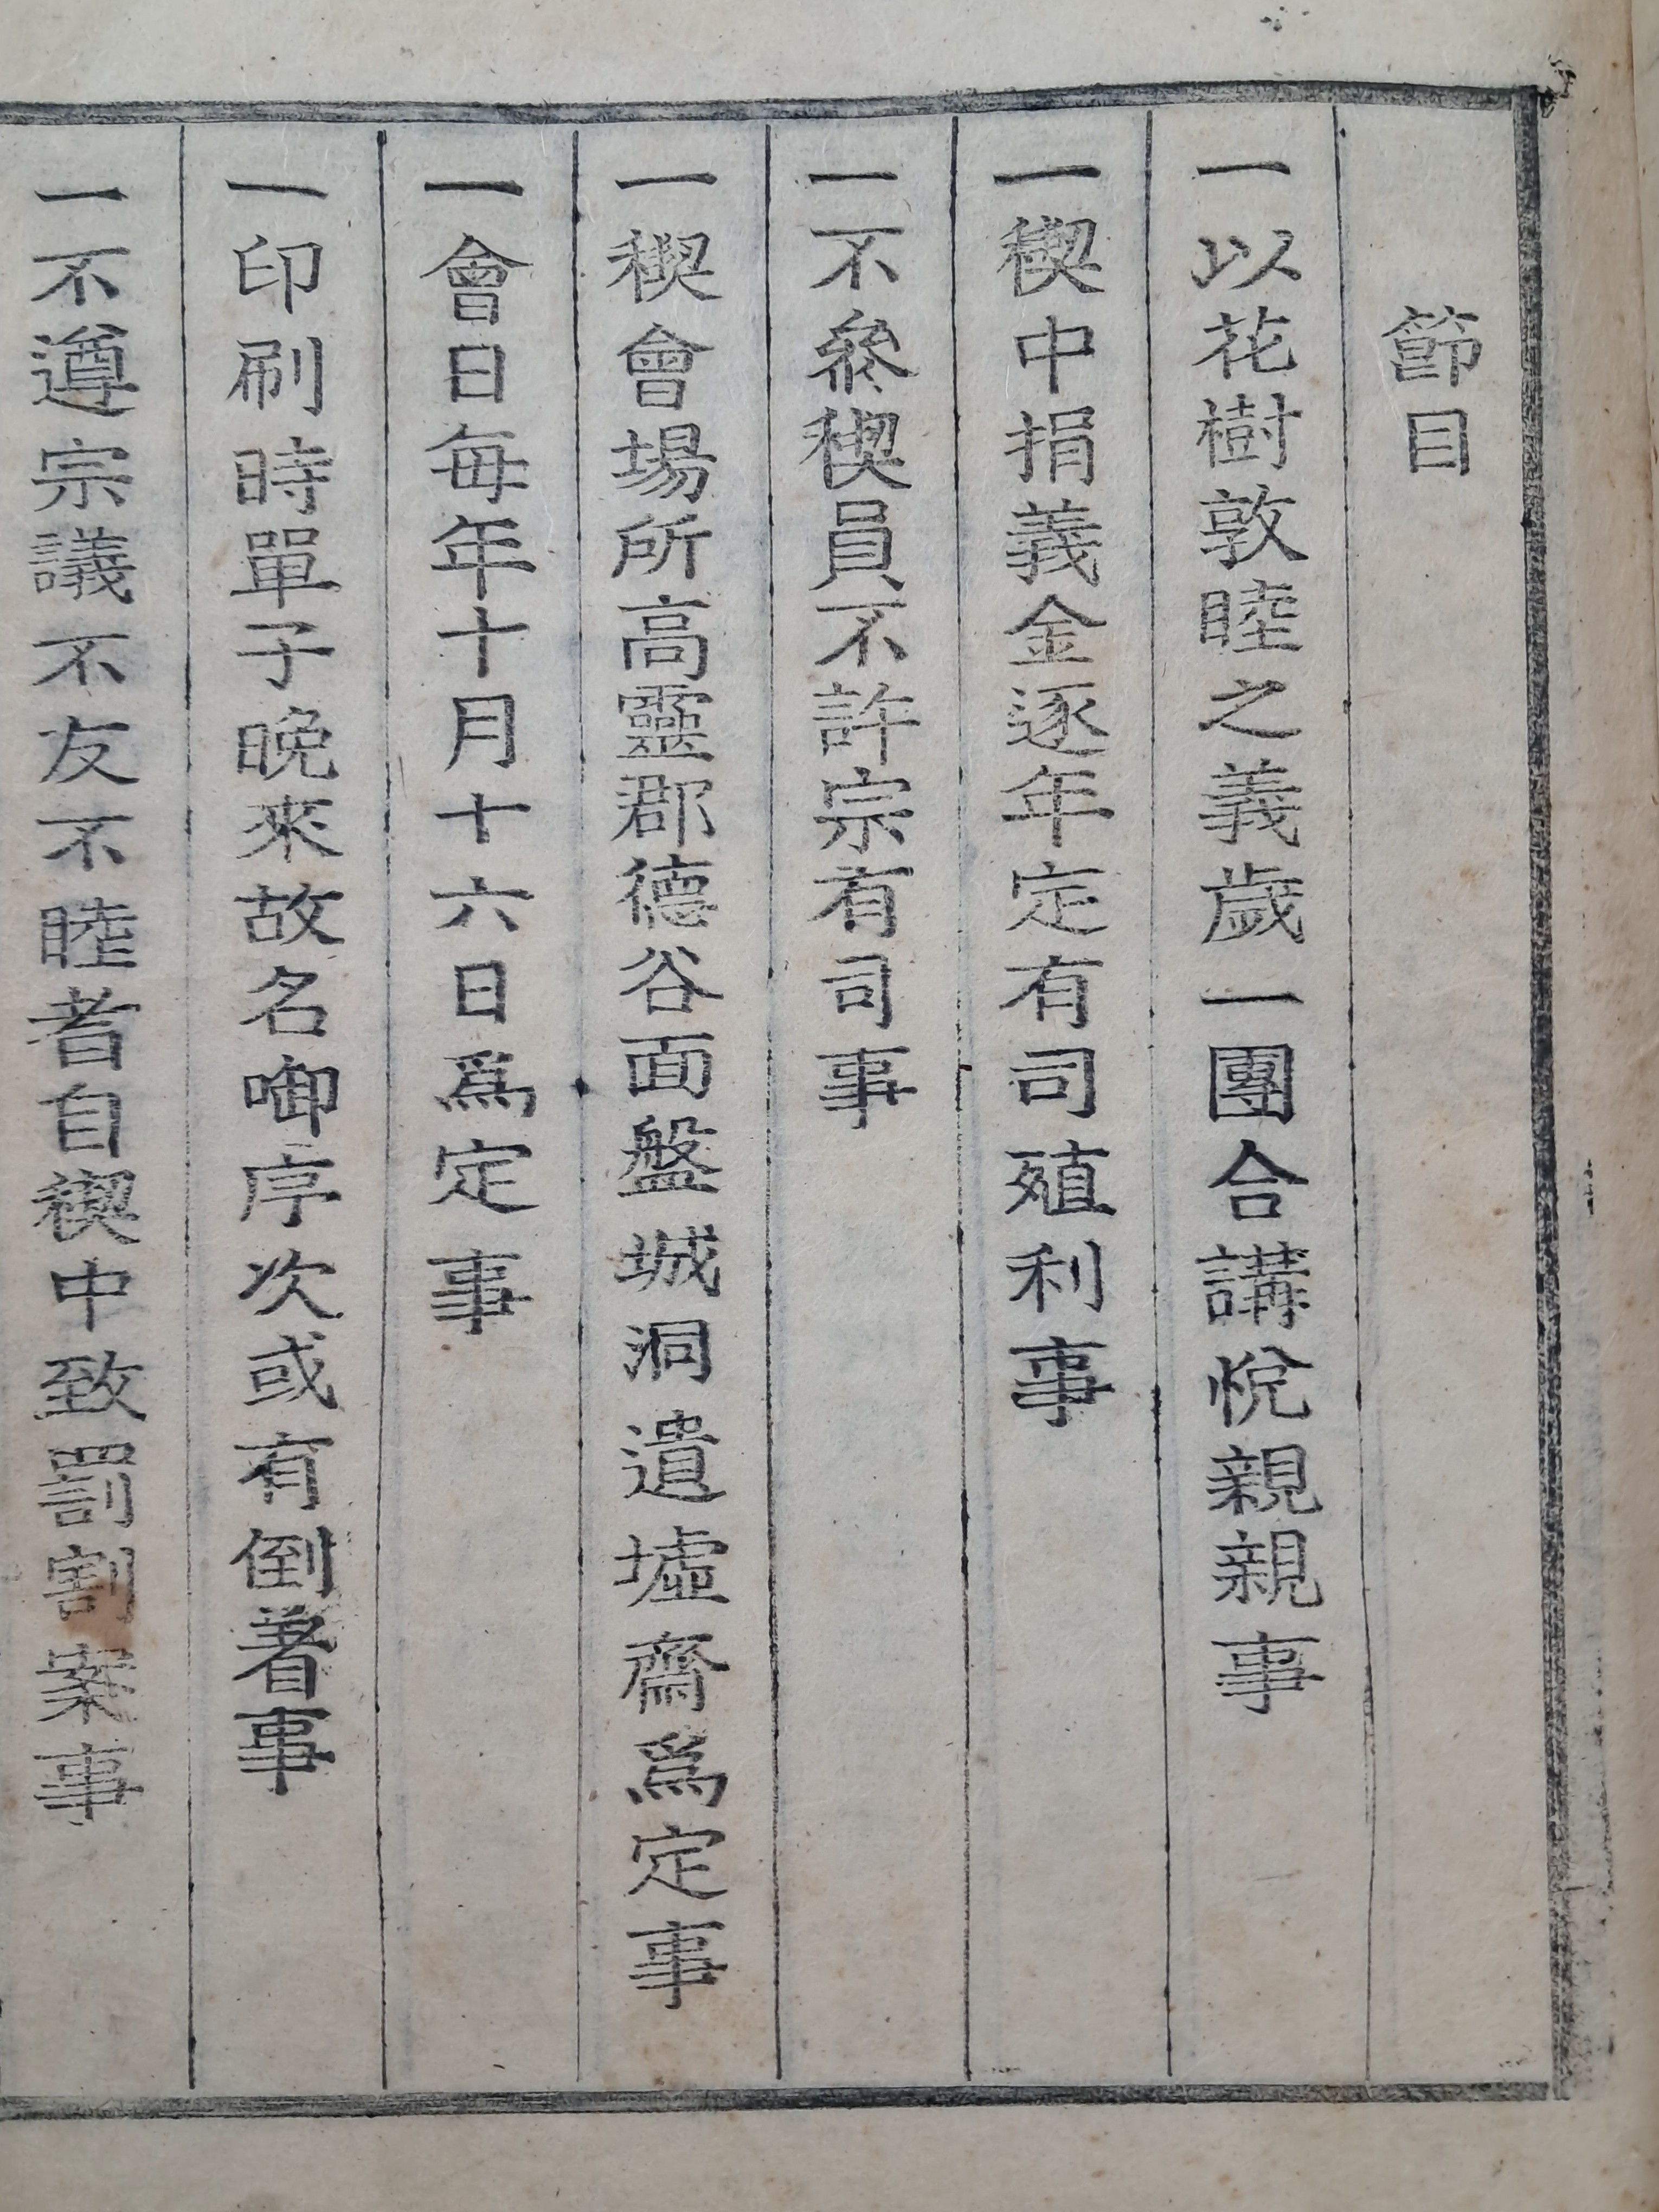 節目
一以花樹敦睦之義歲一團合講悅親親事
一稧中捐義金逐年定有司殖利事
一不叅稧員不許宗有司事
一稧會場所高靈郡德谷面盤城洞遺墟齋爲定事
一會日每年十月十六日爲定事
一印刷時單子晚來故名啣序次或有倒着事
一不遵宗議不友不睦者自稧中致罰割案事